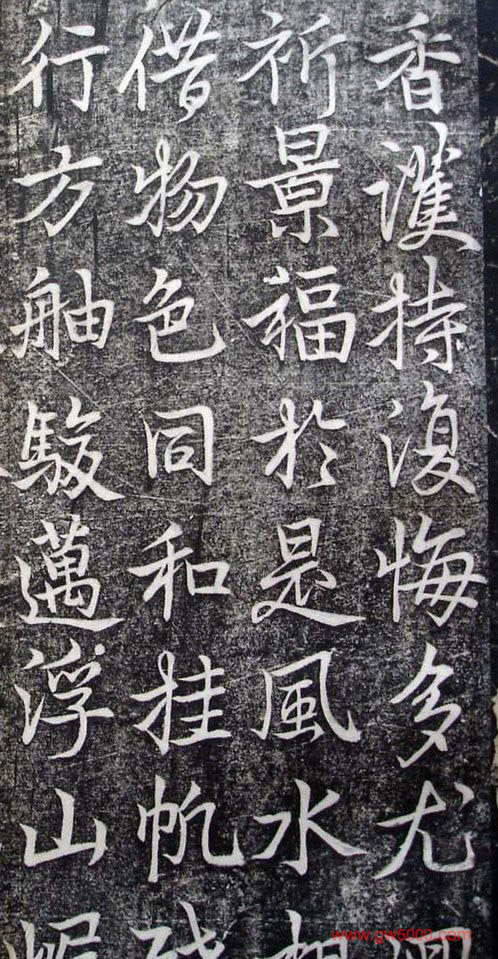 香護持復悔多尤
祈景福於是風水相
借物色同和挂帆
行方舳駿邁浮山
www.gw5000.com